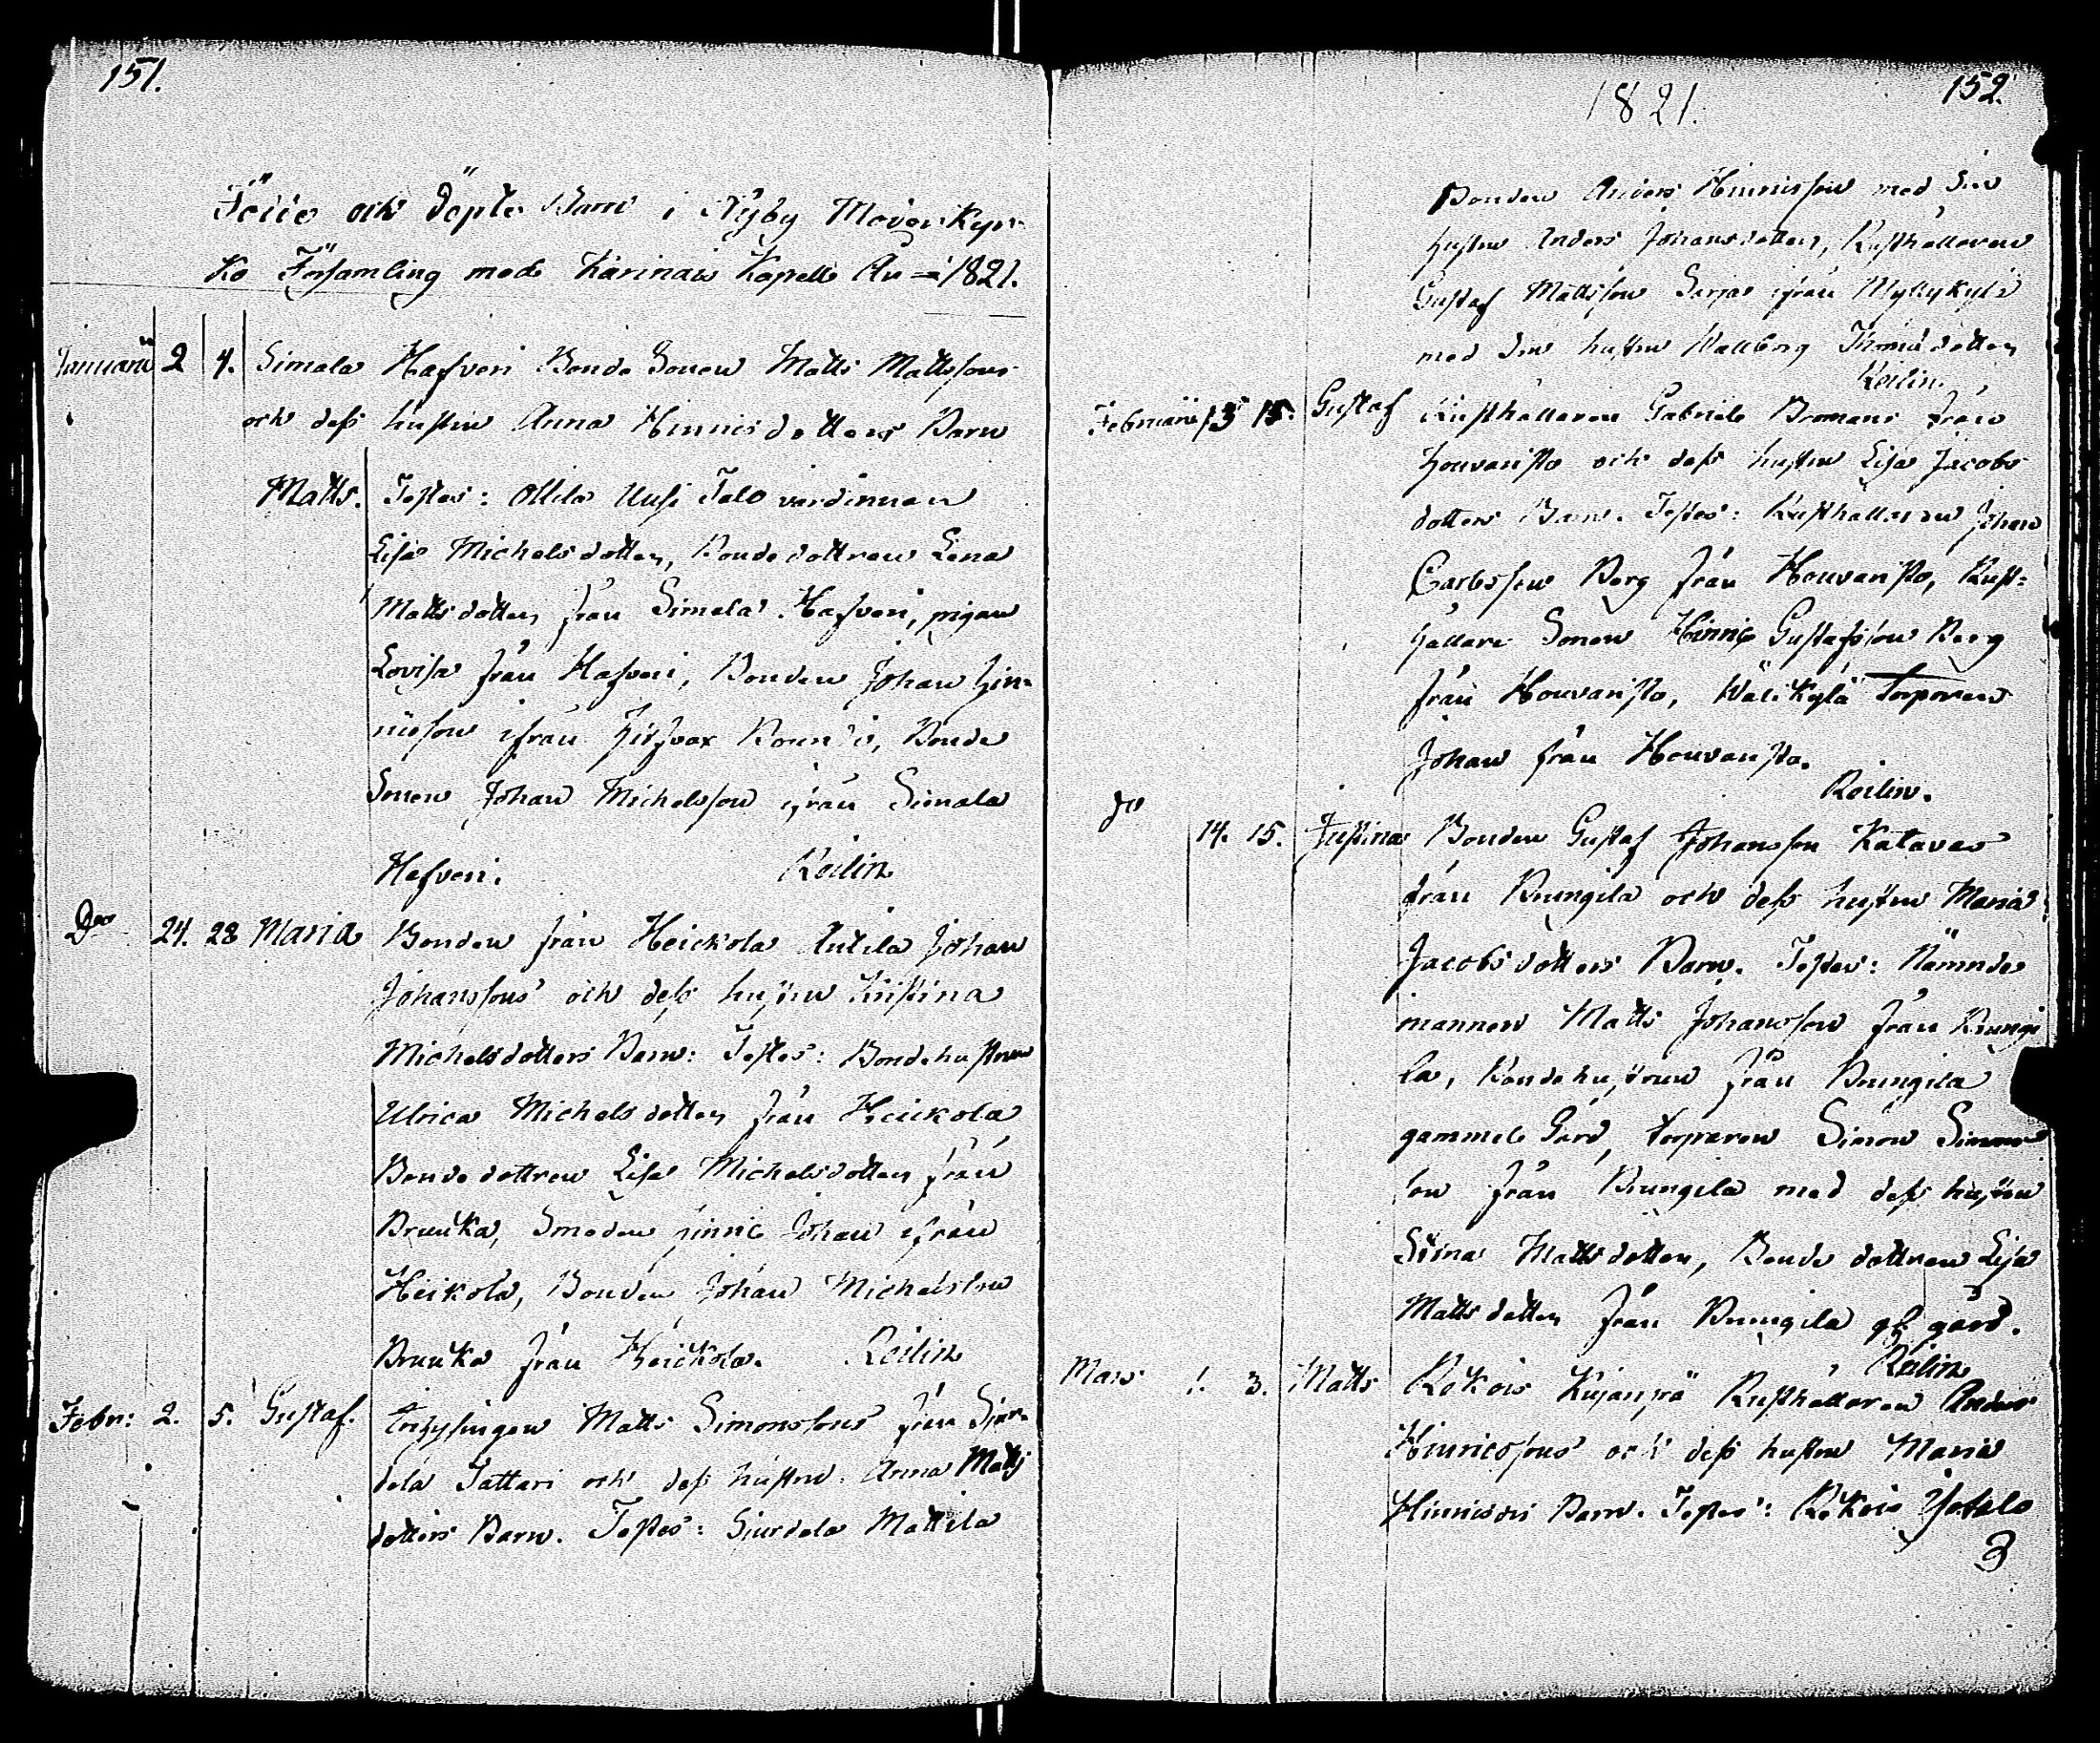 151.
Födde och döpte Barn i Nykyrko Moderkyr-
ko Församling med Karinais Kapell An 1821.
Januarii 2 4. Simala Hafveri Bonde Sonen Matts Mattssons
och dess hustru Anna Hinricsdotters Barn
Matts. Testes: Ollila Uusi Talo värdinnan
Lisa Michelsdotter, Bondedottren Lena
Mattsdotter från Simala Hafveri, pigan
Lovisa från Hafveri, Bonden Johan Hin-
ricsson ifrån, Bonde
Sonen Johan Michelsson ifrån Simala
Hafveri. Roilin
Do 24. 28 Maria Bonden från Heickola Antila Johan
Johanssons och dess hustru Kristina
Michelsdotters Barn: Testes: Bondehustrun
Ulrica Michelsdotter från Heickola
Bondedottren Lisa Michelsdotter från
Bruuka, Smeden Hinric Johan ifrån
Heikola, Bonden Johan Michelsson
Bruuka från Heickola. Roilin
Febr: 2. 5. Gustaf. Inhysingen Matts Simonssons från Sjur-
dela Tattari och dess hustru Anna Matts
dotters Barn. Testes: Sjurdela Mattila
152.
1821.
Bonden Anders Hinricsson med Sin
hustru Johansdotter, Rusthållaren
Gustaf Mattsson Sarjas ifrån Myllykylä
med Sin hustru Wallborg Thomasdotter
Roilin.
Februarii 13 15. Gustaf Rusthållaren Gabriels Bromans från
Houvanisto och dess hustru Lisa Jacobs
dotters Barn. Testes: Rusthållaren Johan
Carlsson Berg från Houvanisto, Rust-
hållare Sonen Hinric Gustafsson Berg
från Houvanisto, Wälikylä Torparen
Johan från Houvanisto.
Roilin.
Do 14. 15. Justina Bonden Gustaf Johansson Katavas
från Prungila och dess hustru Maria
Jacobsdotters Barn. Testes: Nämnde
mannen Matts Johansson från Prungi
la, Bondehustrun från Prungila
gammel Gård, torparen Simon Simons
son från Prungila med dess hustru
Stina Mattsdotter, Bondedottren Lisa
Mattsdotter från Prungila gl. gård.
Roilin
Mars 1. 3. Matts Rekois Kujanpä Rusthållaren Anders
Hinricssons och dess hustru Maria
Hinricsdrs Barn. Testes: Rekois Ylitalo
3